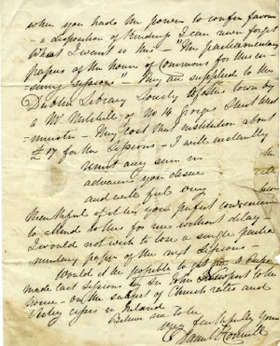 when you had the power to confer favor
a disposition of kindness I can never forget
What I want is this - "The parliamentary
papers of the house of Commons for the en-
suing Sessions" - They are supplied to the
Dublin Library Society of this town by
a Mr Mitchell of No 14 Great
minster - They cost that institution about
£17 for the Sessions - I will instantly
remit any sum in
advance you desire
and feel very
thankful if it be your perfect convenience
to attend to this for me without delay -
I would not wish to lose a single parlia-
mentary paper of the next Sessions -
Would it be possible to get for a
made last Sessions by Sir John Newport to the
house - on the subject of Church rates and
Vestry cesses in Ireland.
Believe me to be
Very faithfully Yours